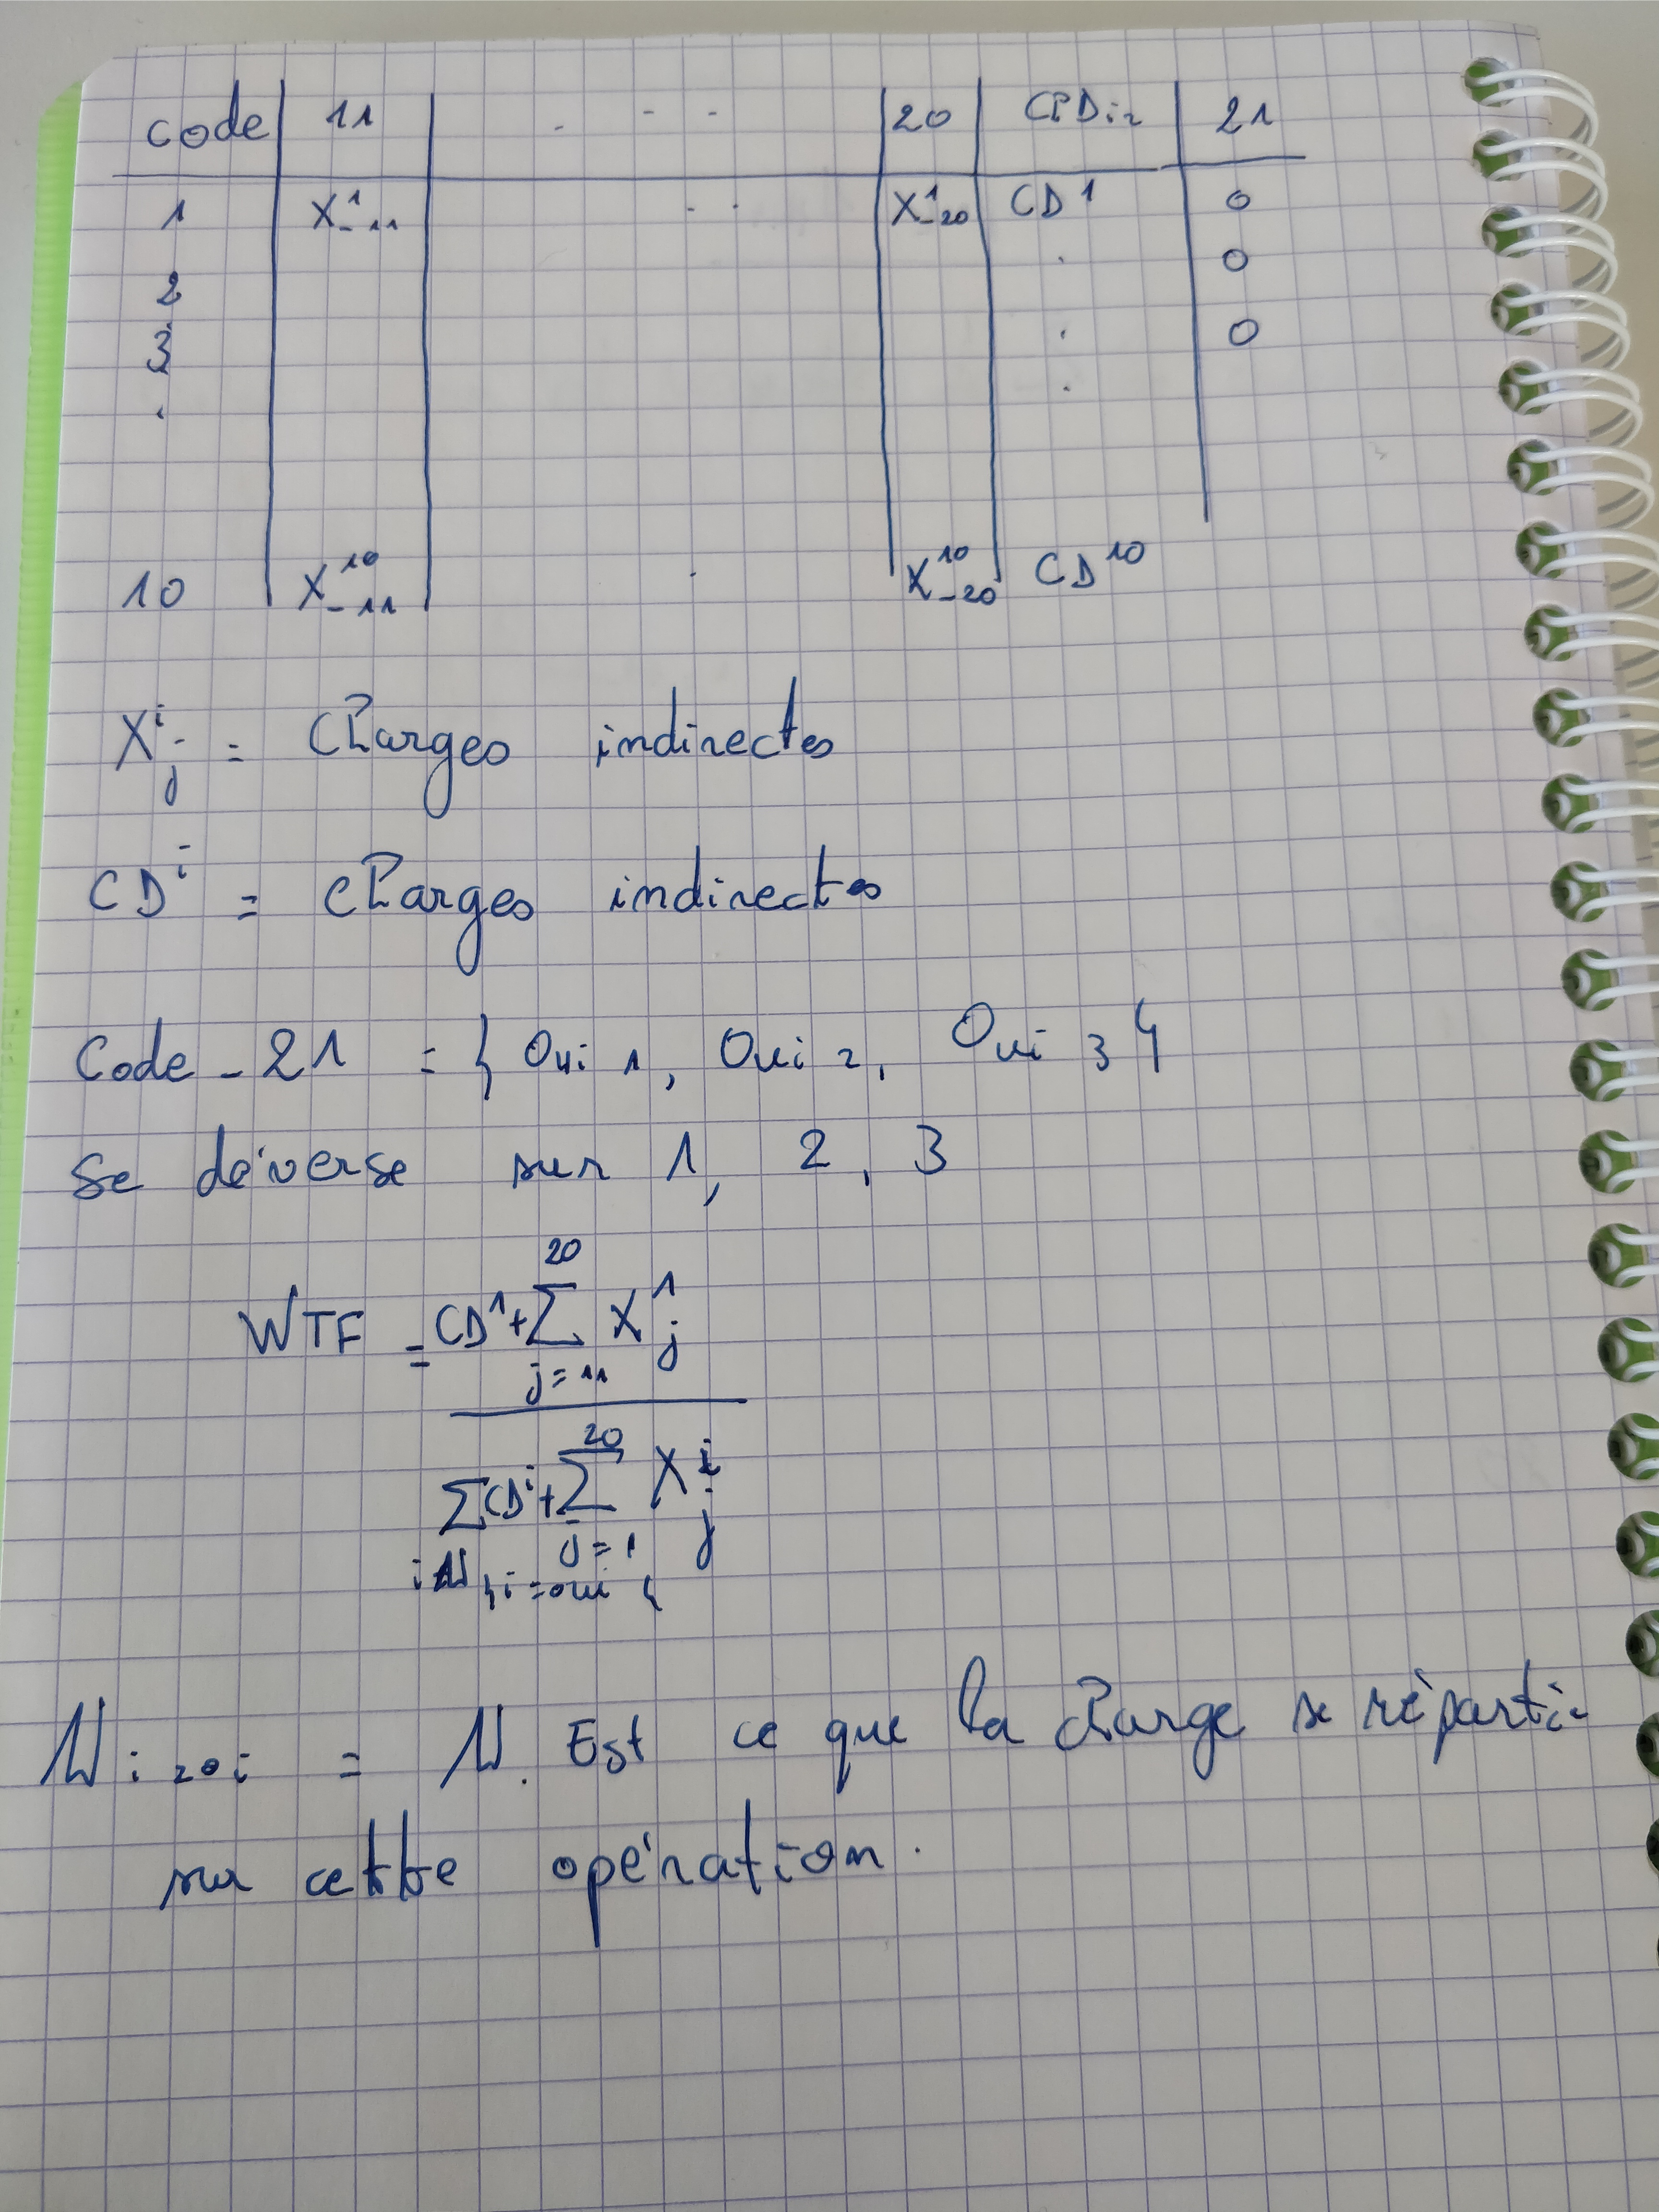 code | 11 | - - - | 20 | ChDir | 21
1 | X¹_11 | . . | X¹_20 | CD¹ | 0
2 | . | 0
3 | . | 0
. | .
10 | X¹⁰_11 | . | X¹⁰_20 | CD¹⁰
Xⁱ_j = Charges indirectes
CDⁱ = Charges indirectes
Code - 21 = { Oui 1, Oui 2, Oui 3 }
Se déverse sur 1, 2, 3
20
WTF = CD¹ + Σ X¹_j
j = 11
20
ΣCDⁱ + Σ Xⁱ_j
j = 1
{i = oui}
= 1. Est ce que la charge se réparti-
sur cette opération.